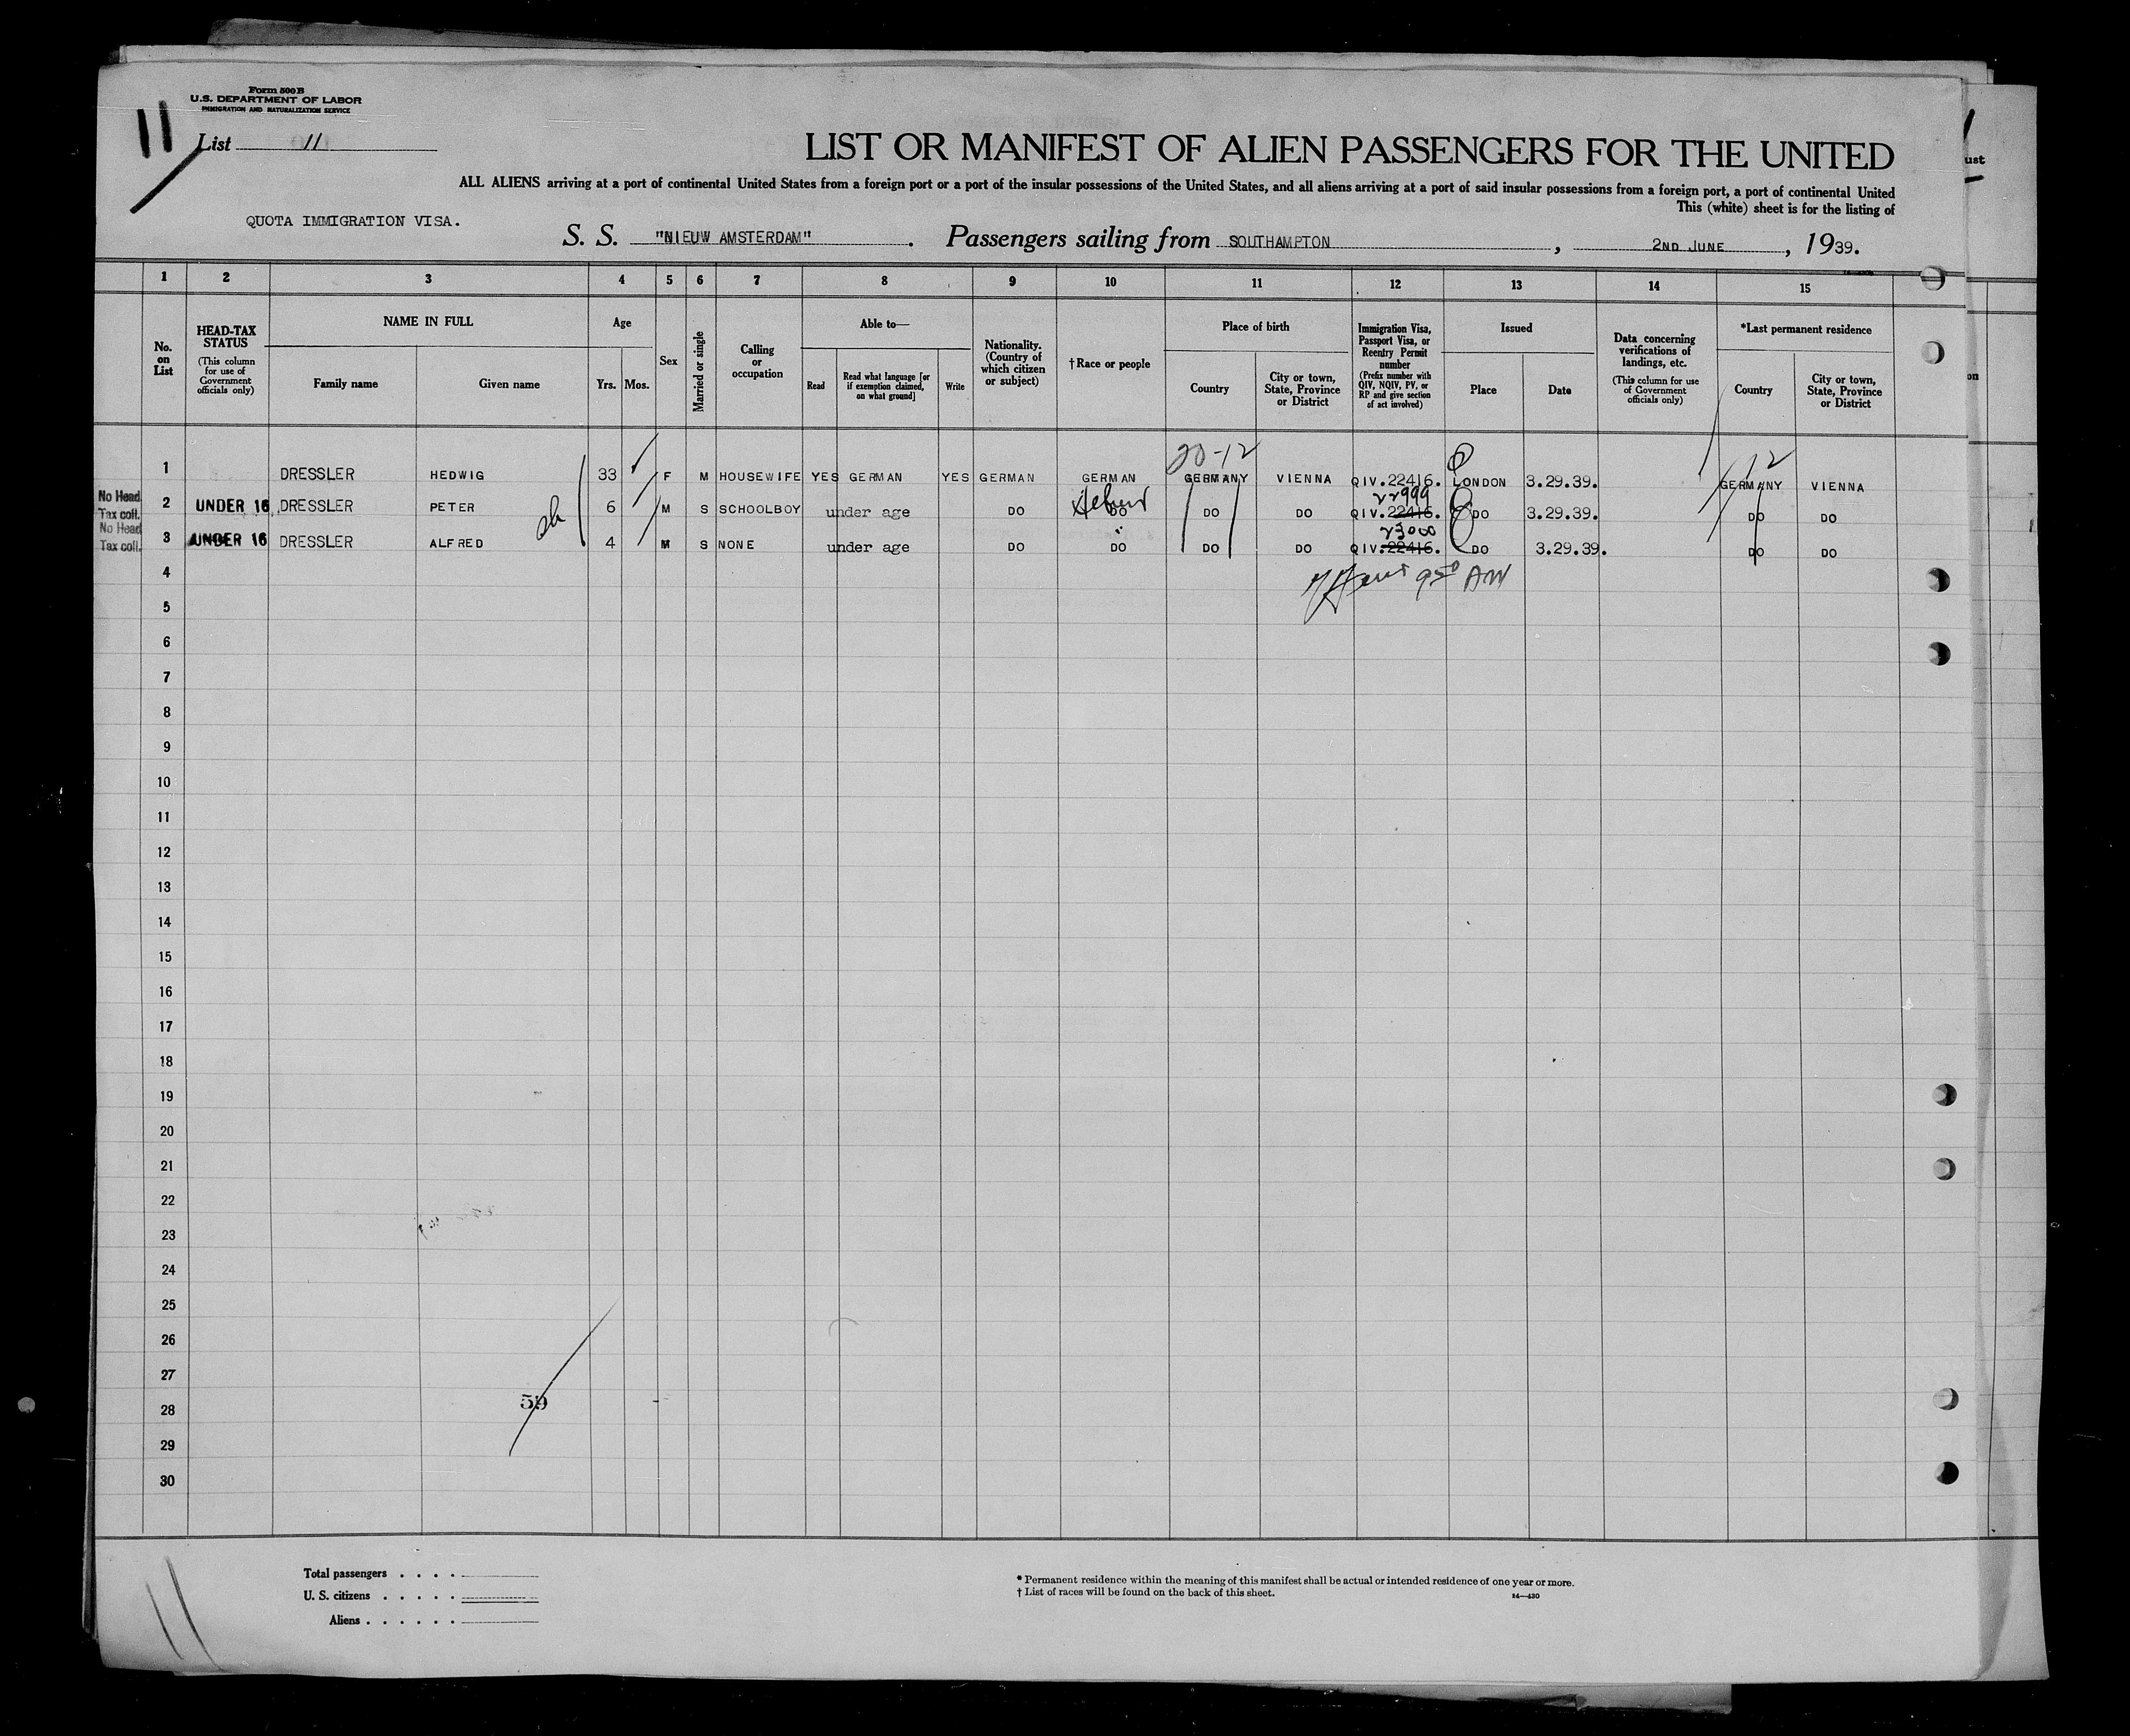 Form 500 B
U.S. DEPARTMENT OF LABOR
IMMIGRATION AND NATURALIZATION SERVICE
11
List 11
LIST OR MANIFEST OF ALIEN PASSENGERS FOR THE UNITED
ALL ALIENS arriving at a port of continental United States from a foreign port or a port of the insular possessions of the United States, and all aliens arriving at a port of said insular possessions from a foreign port, a port of continental United
This (white) sheet is for the listing of
QUOTA IMMIGRATION VISA.
S. S. "NIEUW AMSTERDAM". Passengers sailing from SOUTHAMPTON, 2ND JUNE, 1939.
1 2 3 4 5 6 7 8 9 10 11 12 13 14 15
No. on List
HEAD-TAX STATUS
(This column for use of Government officials only)
NAME IN FULL
Family name Given name
Age
Yrs. Mos.
Sex
Married or single
Calling or occupation
Able to—
Read
Read what language [or if exemption claimed, on what ground]
Write
Nationality. (Country of which citizen or subject)
† Race or people
Place of birth
Country
City or town, State, Province or District
Immigration Visa, Passport Visa, or Reentry Permit number
(Prefix number with QIV, NQIV, PV, or RP and give section of act involved)
Issued
Place Date
Data concerning verifications of landings, etc.
(This column for use of Government officials only)
*Last permanent residence
Country
City or town, State, Province or District
20-12
12
1 DRESSLER HEDWIG 33 F M HOUSEWIFE YES GERMAN YES GERMAN GERMAN GERMANY VIENNA QIV.22416. LONDON 3.29.39. GERMANY VIENNA
No Head Tax coll. 2 UNDER 16 DRESSLER PETER 6 M S SCHOOLBOY under age DO Hebrew DO DO DO QIV.22416. 22999 DO 3.29.39. DO DO
No Head Tax coll. 3 UNDER 16 DRESSLER ALFRED 4 M S NONE under age DO DO DO DO QIV.22416. 23000 DO 3.29.39. DO DO
4
5
6
7
8
9
10
11
12
13
14
15
16
17
18
19
20
21
22
23
24
25
26
27
28
29
30
59
Total passengers . . . .
U. S. citizens . . . . .
Aliens . . . . . .
* Permanent residence within the meaning of this manifest shall be actual or intended residence of one year or more.
† List of races will be found on the back of this sheet.
14—430